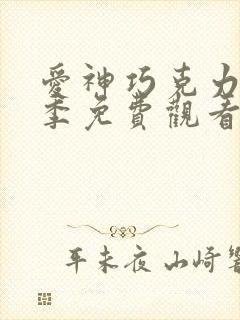 愛神巧克力
季免費觀看
平未夜 山崎響